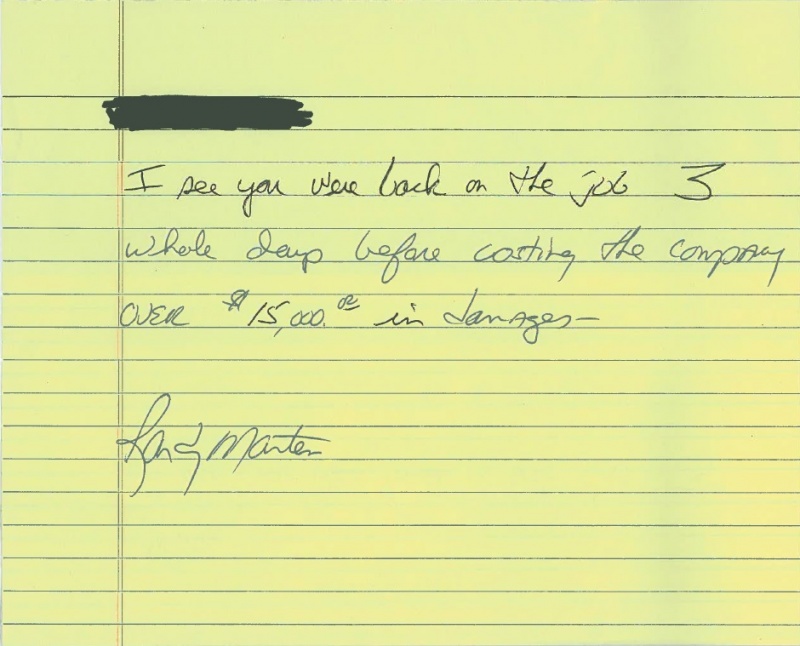 I see you were back on the job 3
whole days before costing the company
OVER $15,000.00 in damages—
Randy Marten